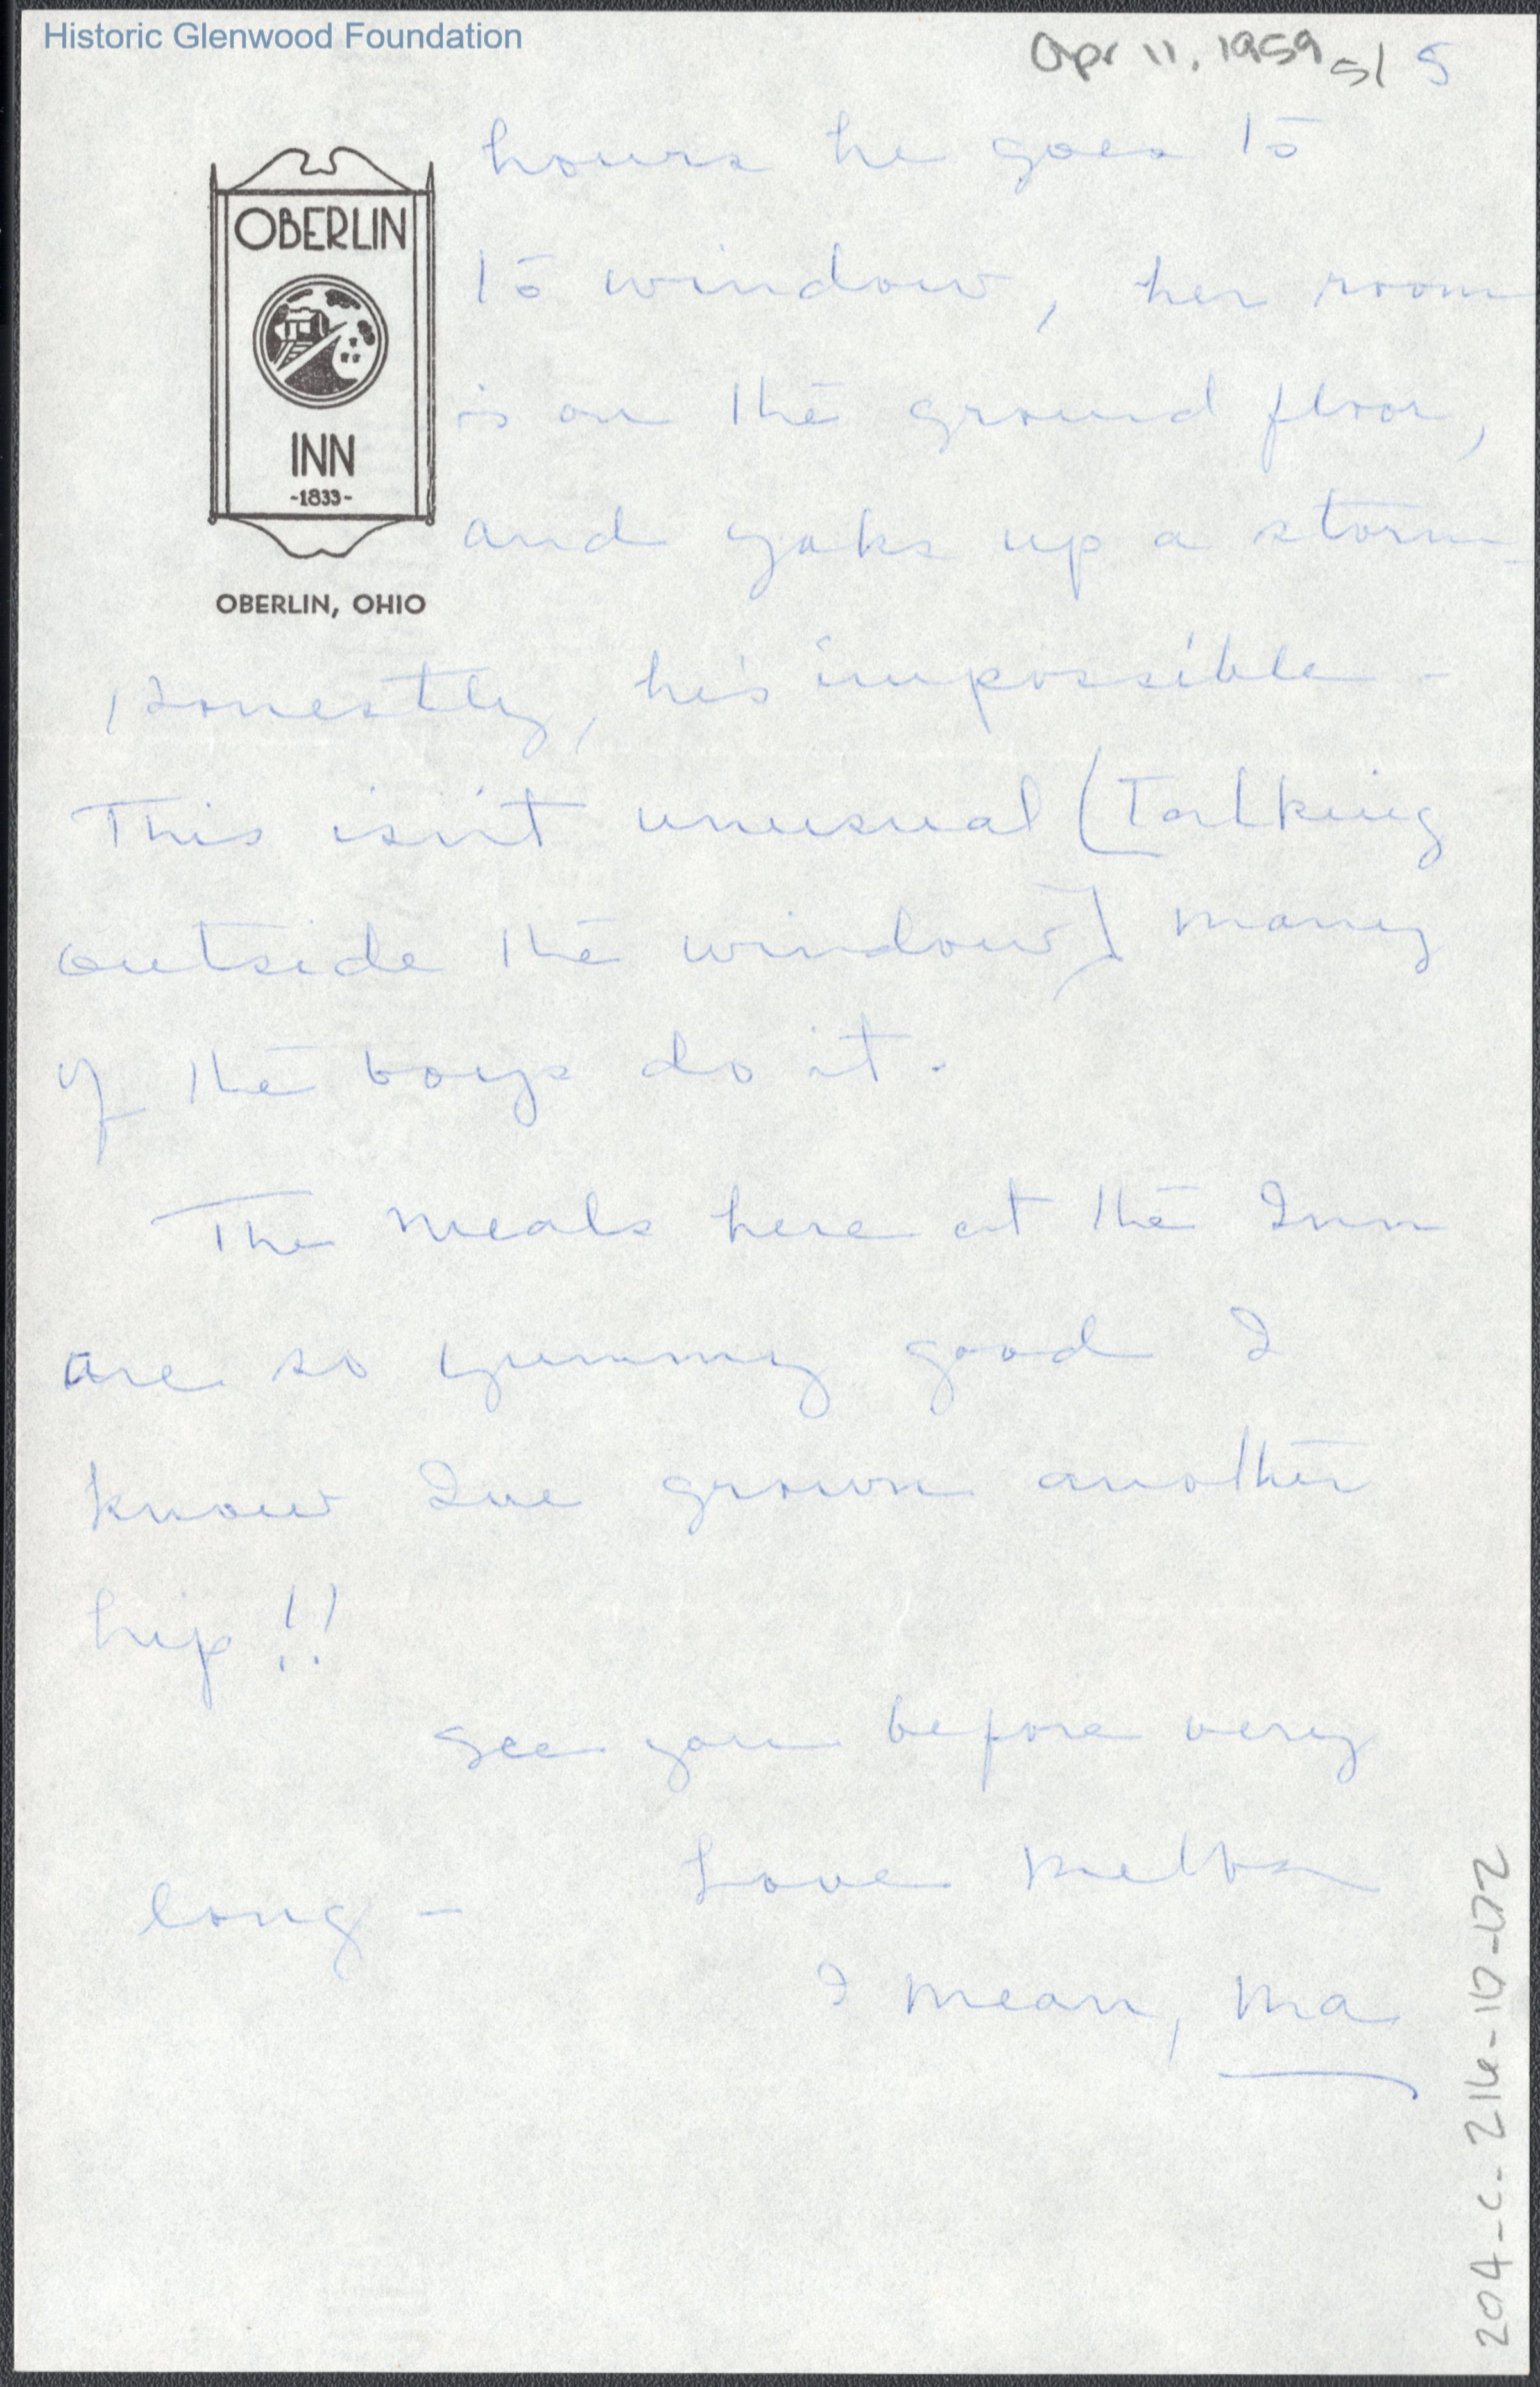 Historic Glenwood Foundation
Apr 11, 1959 5/ 5
OBERLIN
INN
-1833-
OBERLIN, OHIO
hours he goes to
to window, her room
is on the ground floor,
and yaks up a storm -
Honestly, he's impossible -
This isn't unusual (Talking
outside the window) many
of the boys do it.
The meals here at the Inn
are so yummy good I
know I've grown another
hip!!
See you before very
long -
Love Melba
I mean, Ma
204-C-216-10-072